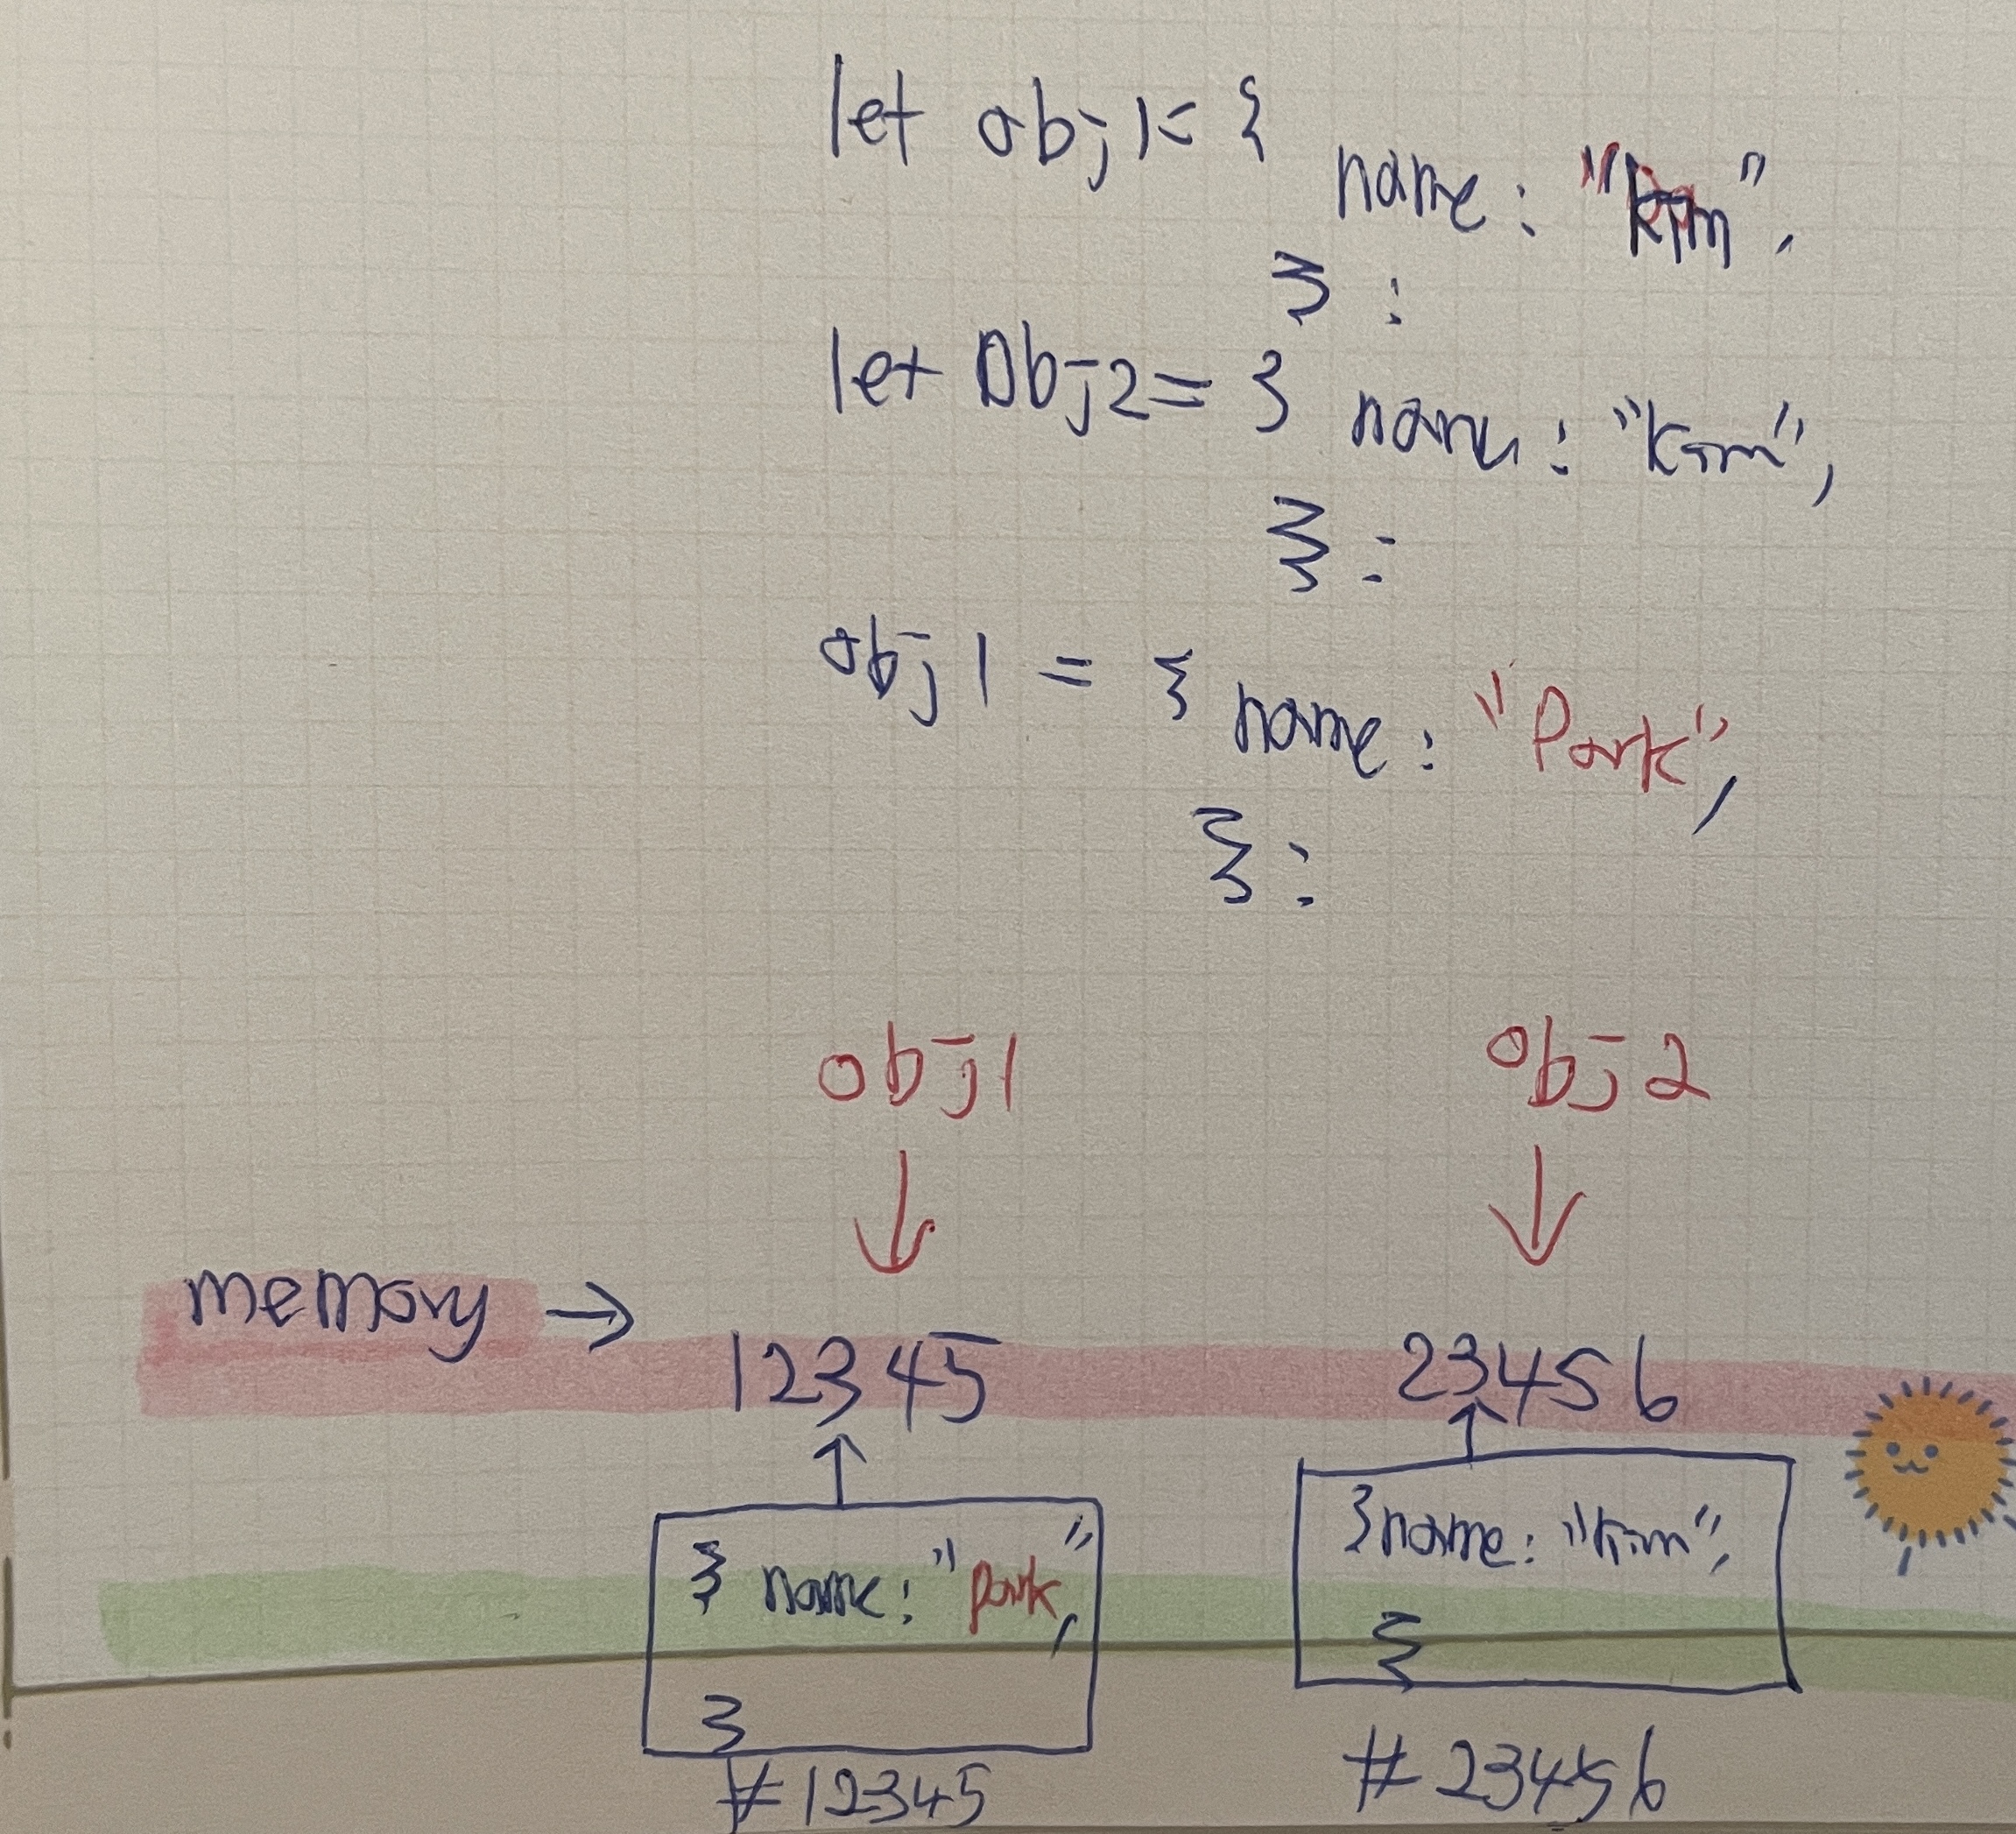 let obj1 = {
name: "kim",
};
let Obj2 = { name: "kim",
};
obj1 = { name: "Park",
};
obj1 obj2
memory → 12345 23456
{ name: "park", {name: "kim",
} }
#12345 #23456